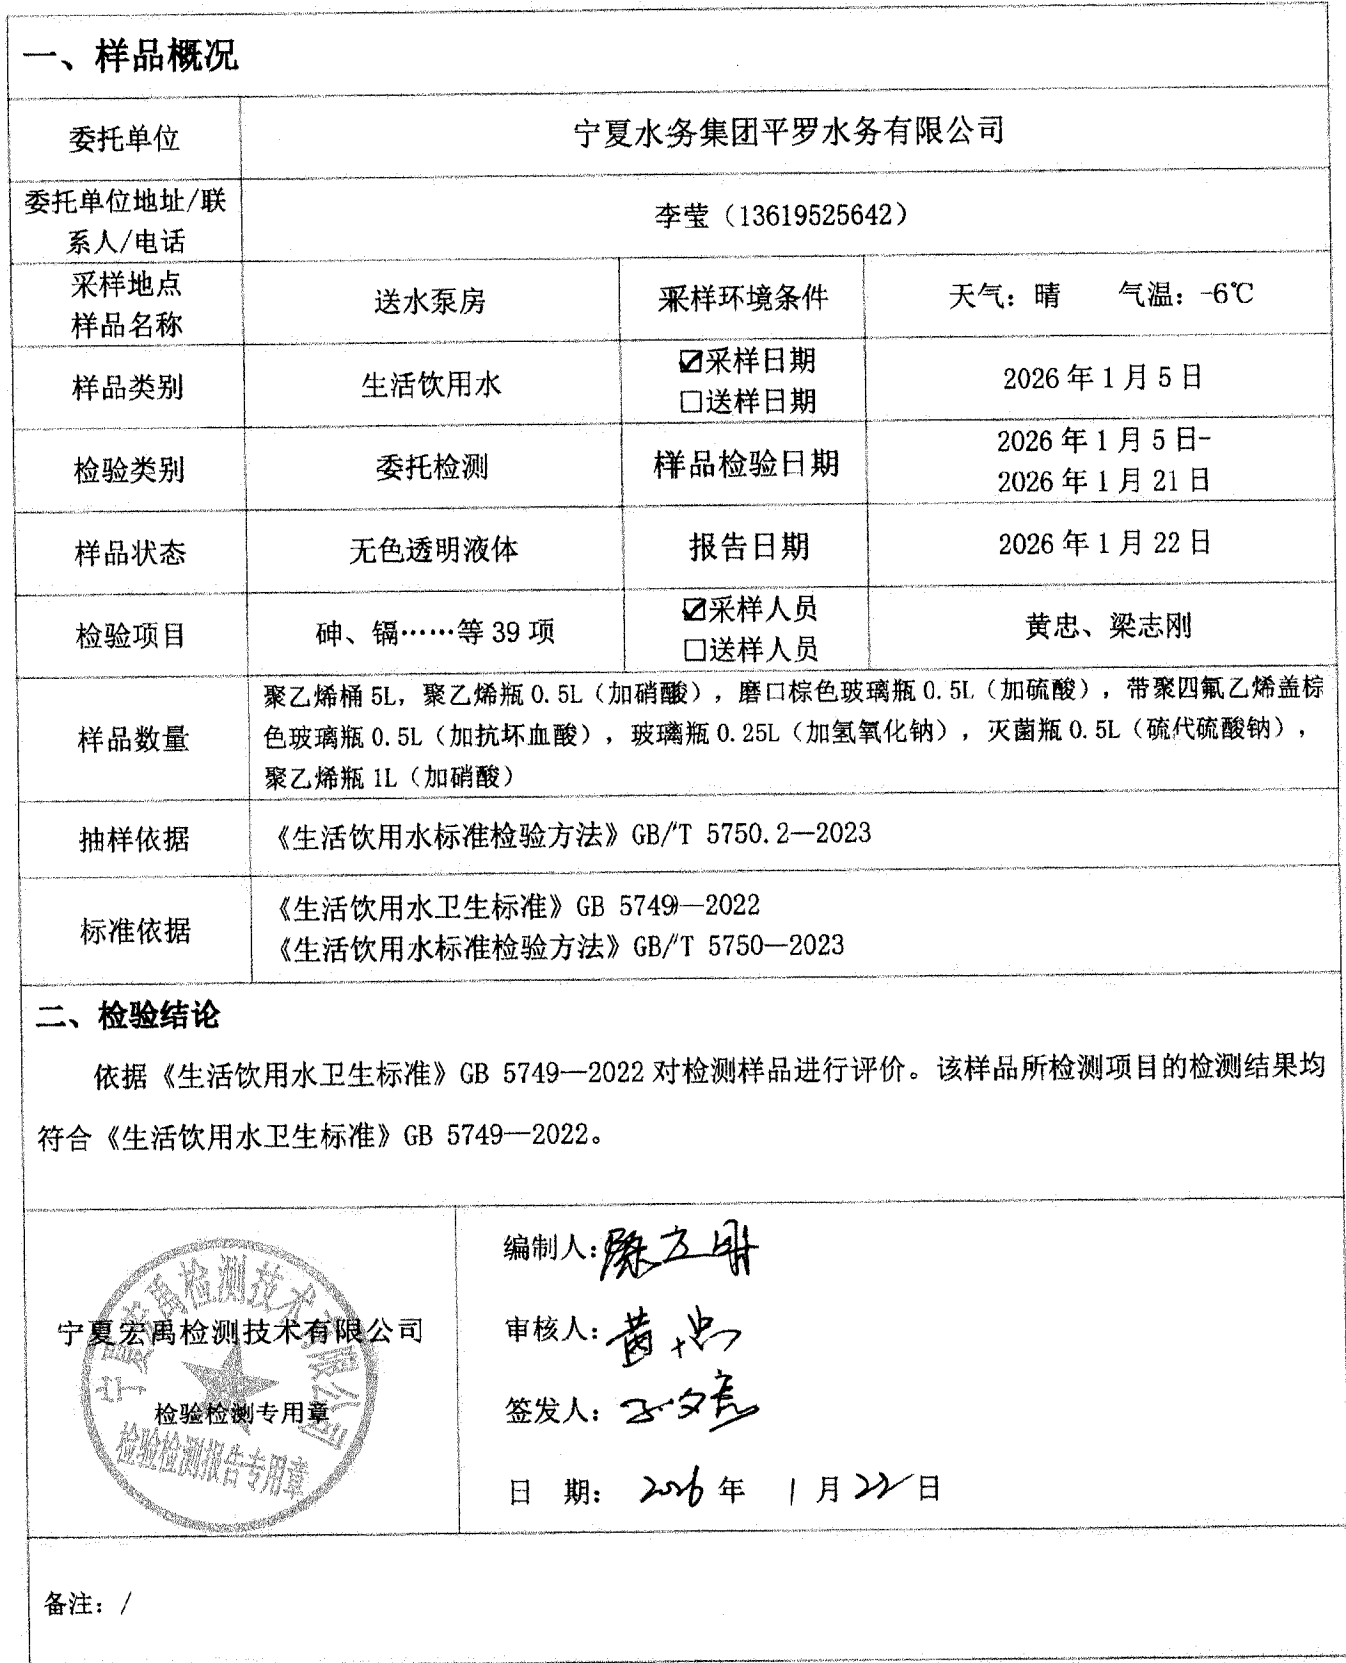 一、样品概况
委托单位
宁夏水务集团平罗水务有限公司
委托单位地址/联
系人/电话
李莹（13619525642）
采样地点
样品名称
送水泵房
采样环境条件
天气：晴 气温：-6℃
样品类别
生活饮用水
☑采样日期
□送样日期
2026年1月5日
检验类别
委托检测
样品检验日期
2026年1月5日-
2026年1月21日
样品状态
无色透明液体
报告日期
2026年1月22日
检验项目
砷、镉……等39项
☑采样人员
□送样人员
黄忠、梁志刚
样品数量
聚乙烯桶5L，聚乙烯瓶0.5L（加硝酸），磨口棕色玻璃瓶0.5L（加硫酸），带聚四氟乙烯盖棕
色玻璃瓶0.5L（加抗坏血酸），玻璃瓶0.25L（加氢氧化钠），灭菌瓶0.5L（硫代硫酸钠），
聚乙烯瓶1L（加硝酸）
抽样依据
《生活饮用水标准检验方法》GB/T 5750.2—2023
标准依据
《生活饮用水卫生标准》GB 5749—2022
《生活饮用水标准检验方法》GB/T 5750—2023
二、检验结论
依据《生活饮用水卫生标准》GB 5749—2022对检测样品进行评价。该样品所检测项目的检测结果均
符合《生活饮用水卫生标准》GB 5749—2022。
宁夏宏禹检测技术有限公司
检验检测专用章
宁夏宏禹检测技术有限公司
检验检测报告专用章
编制人：
审核人：黄忠
签发人：
日 期： 2026年 1月22日
备注：/